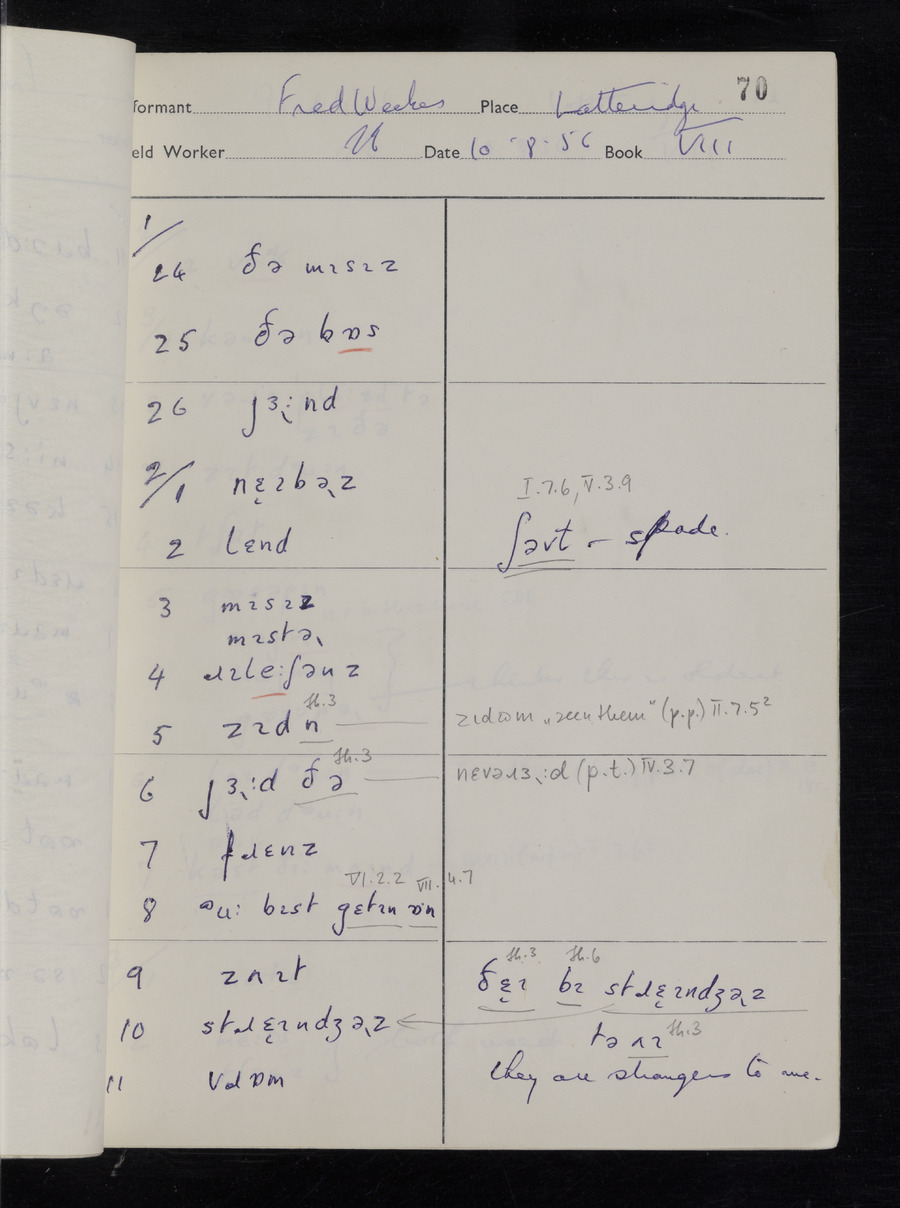 70
formant Fred Weekes Place Latteridge
eld Worker Date 10-8-56 Book VIII
1/
24 ðə mɪsɪz
25 ðə bɒs
26 ʃɜ˞:nd
2/1 nɛ̞ɪbə˞z
I.7.6, V.3.9
2 lɛnd
ʃəvt – spade.
3 mɪsɪz
mɪstə˞
4 ɹɪle:ʃənz
th.3
5 zɪdn
zɪdəm "seen them" (p.p.) II.7.5²
th.3
6 ʃɜ˞:d ðə
nɛvəɹɜ˞:d (p.t.) IV.3.7
7 fɹɛnz
VI.2.2 VII.4.7
8 əu: bɪst gɛtɪn ɒn
9 zʌɪt
th.3 th.6
ðɛ̞ɪ bɪ stɹɛ̞ɪndʒə˞z
10 stɹɛ̞ɪndʒə˞z
tə ʌɪ th.3
they are strangers to me.
11 vɹɒm